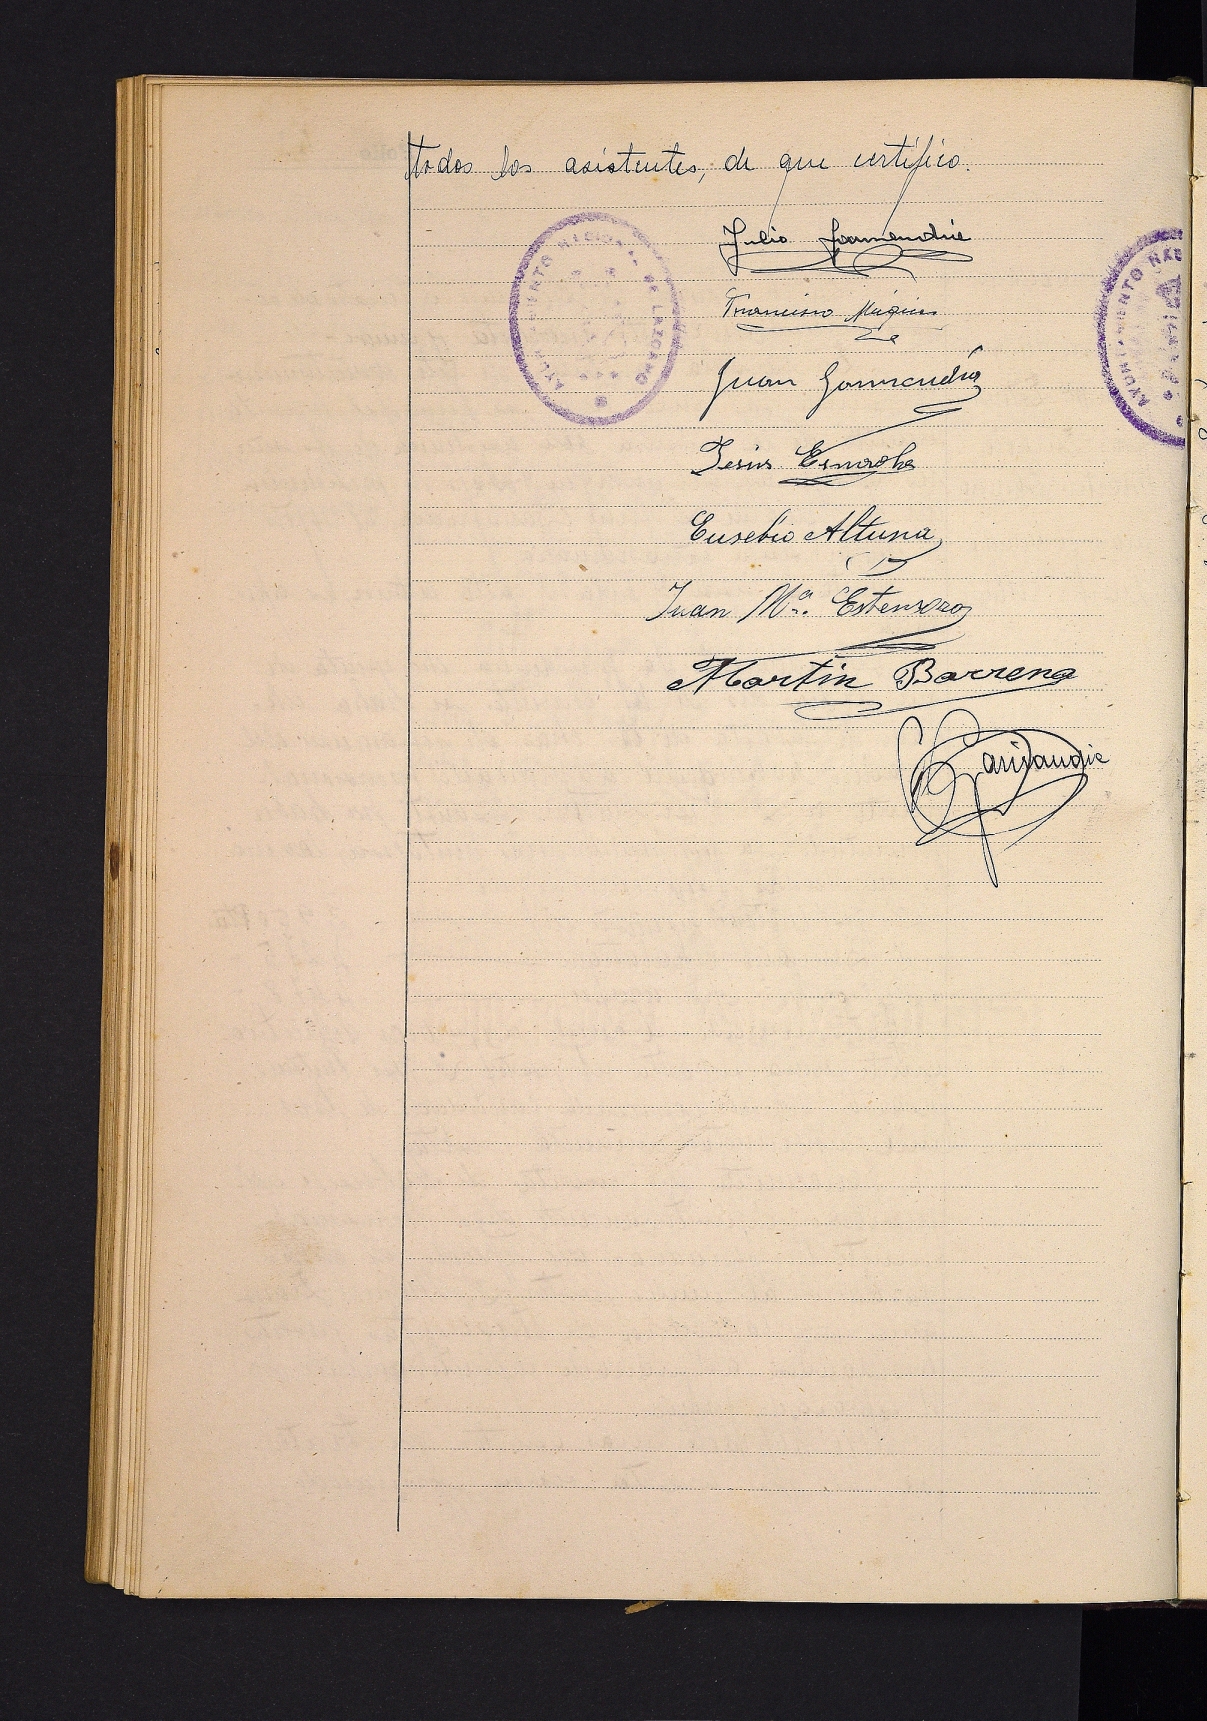 todos los asistentes, de que certifico.
AYUNTAMIENTO NACIONAL DE LAZCANO
Julio
Francisco Múgica
Juan Garmendia
Jesús
Eusebio Altuna
Juan Mª. Estensoro
Martin Barrena
AYUNTAMIENTO NAC